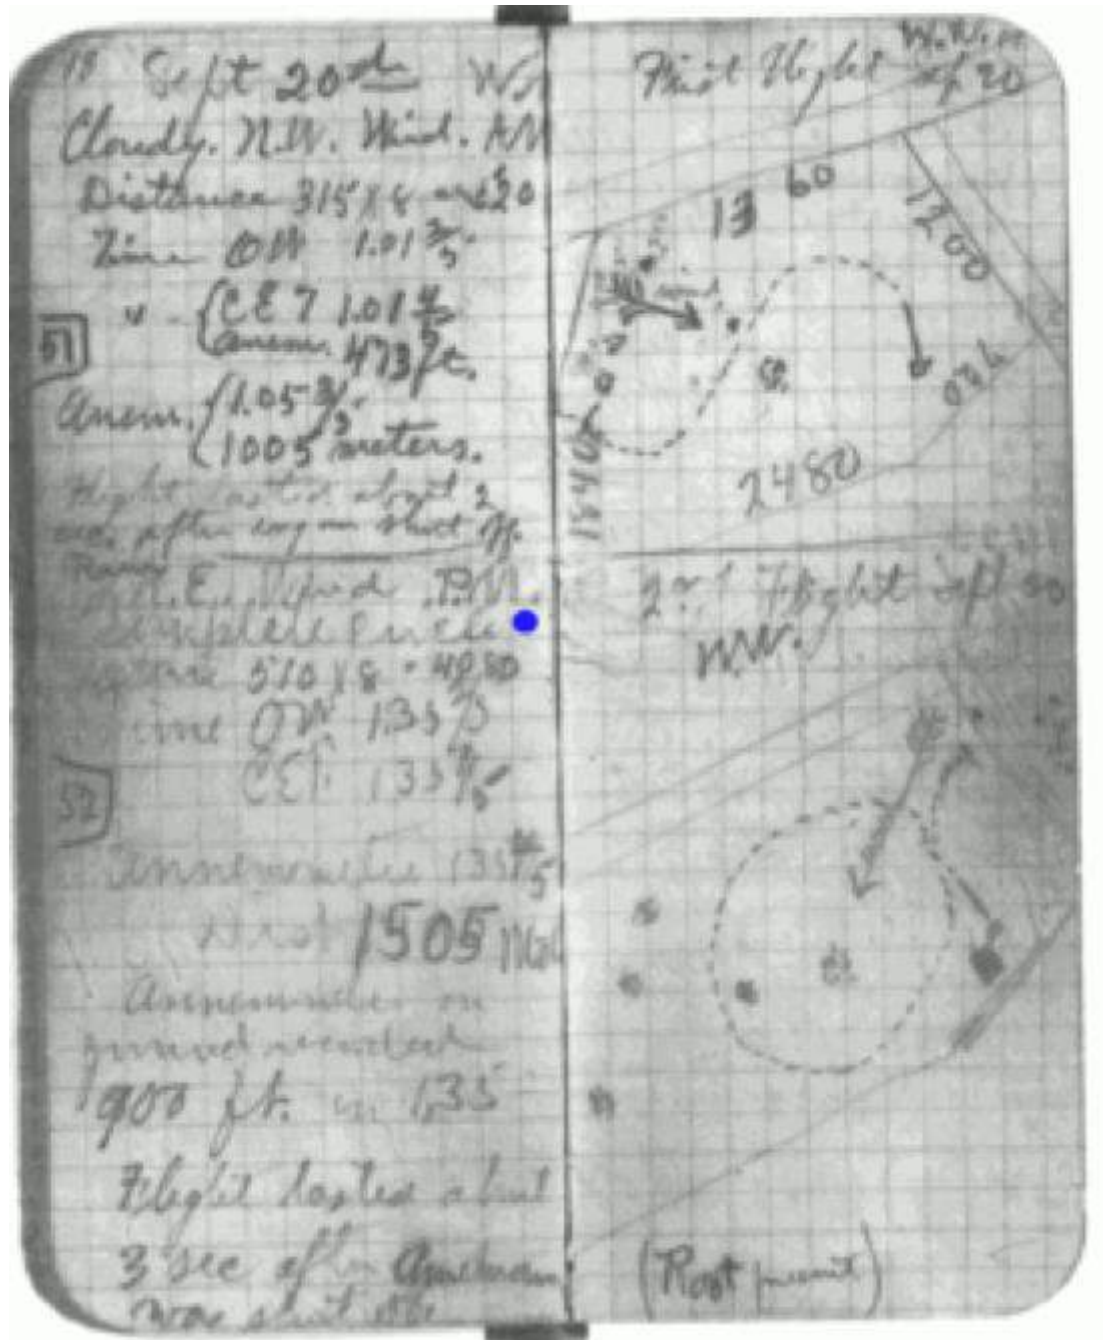 18 Sept 20th
Cloudy. N.W. Wind. AM
Distance 315 x 8 2520
Time OW 1.01 3/5
" CET 1.01 4/5
Anem. 473 ft.
51
Anem. 1.05 3/5
1005 meters.
Flight lasted about 2
sec. after engine shut off.
N.E. Wind P.M.
Complete Circle
510 x 8 = 4080
Time OW 135
CET. 135 4/5
52
Annemometer 135 4/5
Dist 1505 Met
Annemometer on
ground recorded
900 ft. in 135
Flight lasted about
3 sec after
was shut off
First Flight W.W.
Sep 20
1360
1200
720
2480
1840
2nd Flight Sept 20
W.W.
(Root present)